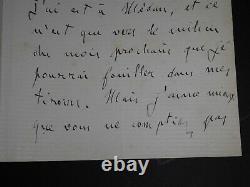 j'ai est à Médan, et ce
n'est que vers le milieu
du mois prochain que je
pourrai fouiller dans mes
tiroirs. Mais j'aime mieux
que vous ne comptiez pas
thumbimg.com